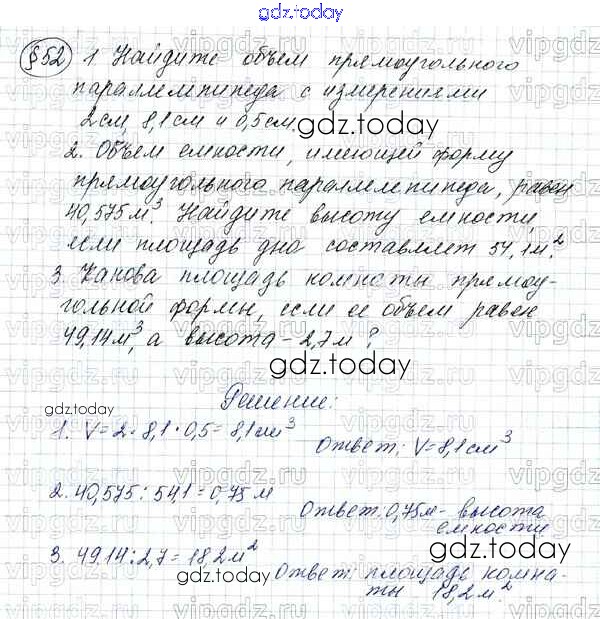 gdz.today
§52 1 Найдите объем прямоугольного
параллелепипеда с измерениями
2см, 8,1см и 0,5см.
gdz.today
2. Объем емкости, имеющей форму
прямоугольного параллелепипеда, равен
40,575м³. Найдите высоту емкости,
если площадь дна составляет 54,1м².
3. Какова площадь комнаты прямоу-
гольной формы, если ее объем равен
49,14м³, а высота - 2,7м?
gdz.today
gdz.today
Решение:
1. V=2·8,1·0,5=8,1см³
Ответ: V=8,1см³
2. 40,575:54,1=0,75м
Ответ: 0,75м - высота
емкости
gdz.today
3. 49,14:2,7=18,2м²
Ответ: площадь комна-
ты 18,2м².
gdz.today